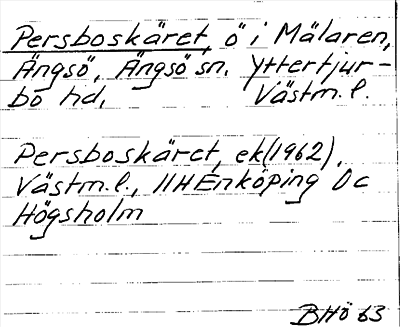 Persboskäret, ö i Mälaren,
Ängsö, Ängsö sn. Yttertjur-
bo hd, Västm.l.
Persboskäret, ek(1962).
Västm.l., 11H Enköping 0c
Högsholm
BHö 63